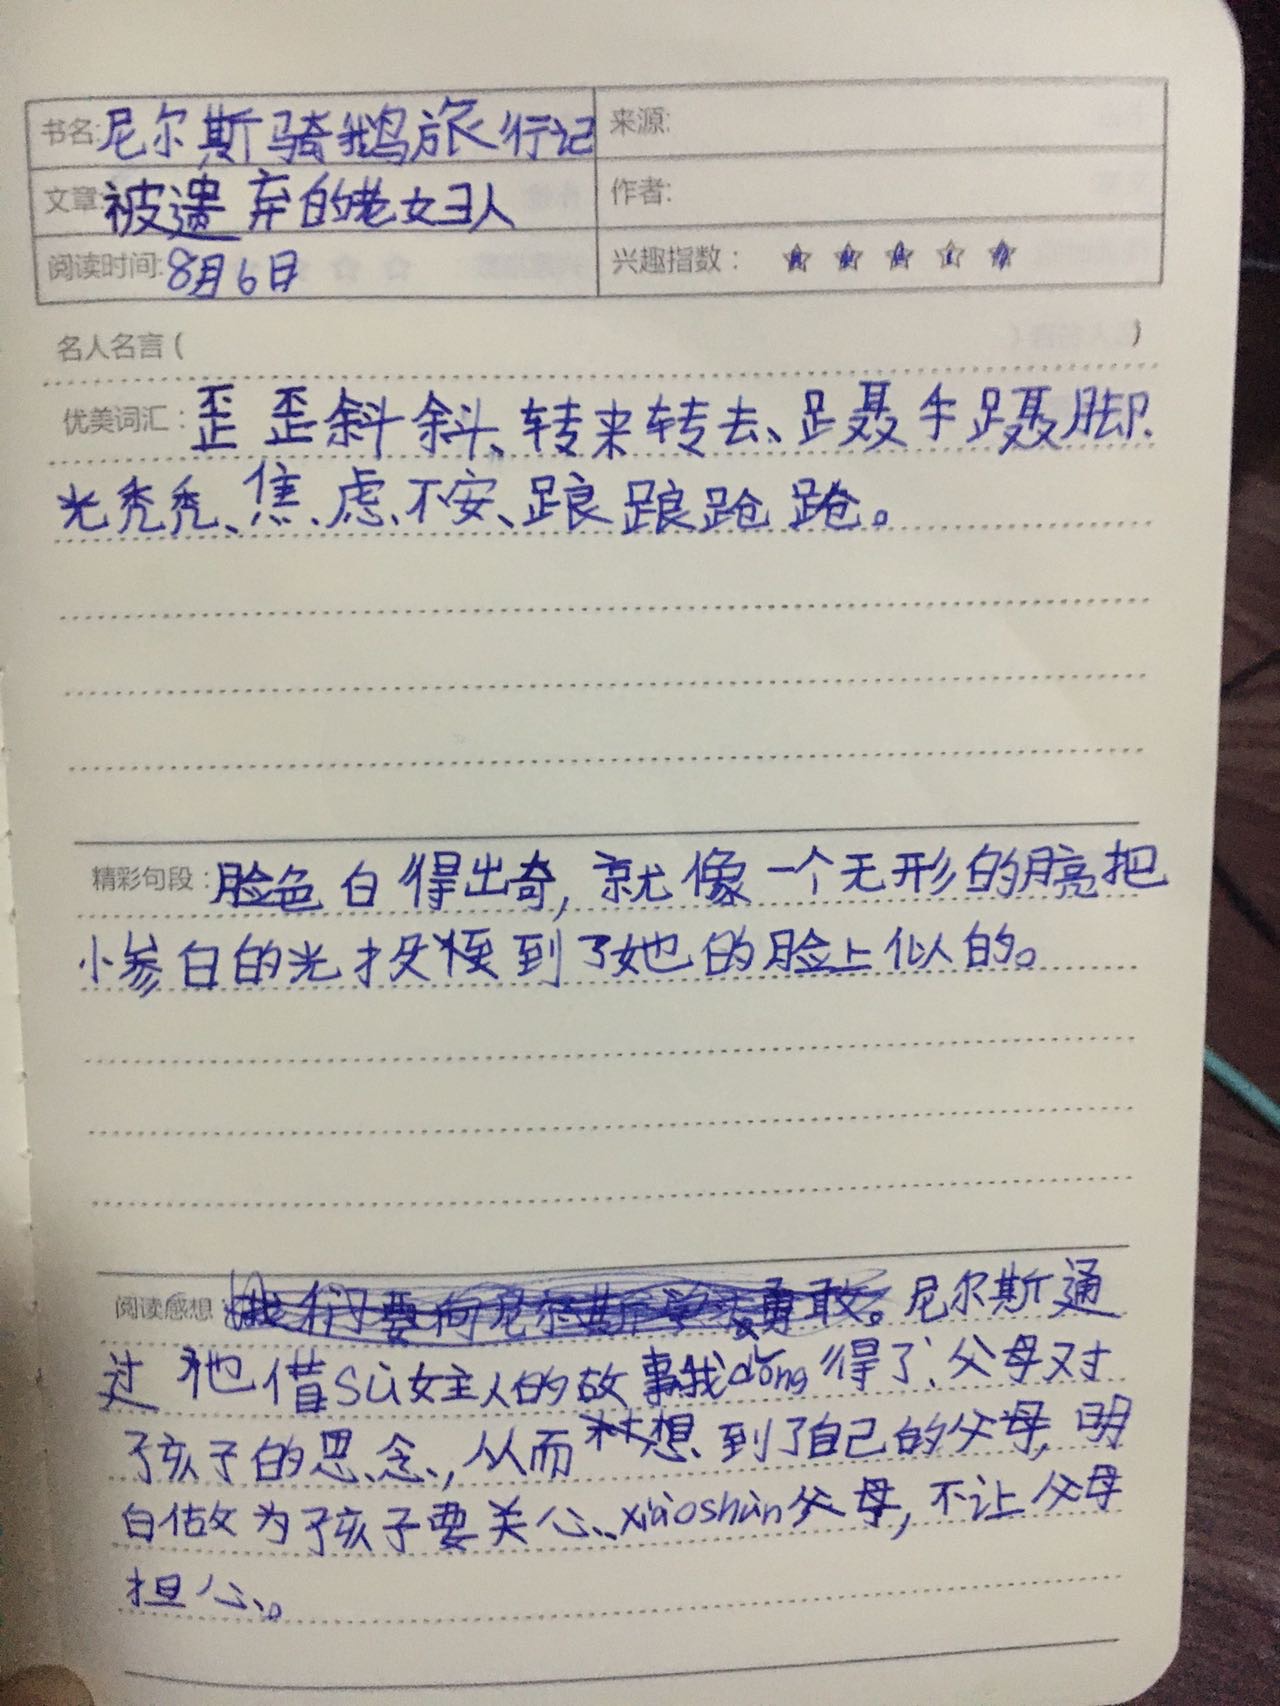 书名:尼尔斯骑鹅旅行记 来源:
文章:被遗弃的老女主人 作者:
阅读时间:8月6日 兴趣指数: ★★★★★
名人名言( )
优美词汇:歪歪斜斜、转来转去、蹑手蹑脚、
光秃秃、焦虑不安、踉踉跄跄。
精彩句段:脸色白得出奇,就像一个无形的月亮把
惨白的光投到了她的脸上似的。
阅读感想 我们要向尼尔斯学 勇敢。尼尔斯通
过他借sù女主人的故事我dǒng得了父母对
孩子的思念,从而想到了自己的父母,明
白做为孩子要关心、xiàoshùn父母,不让父母
担心。